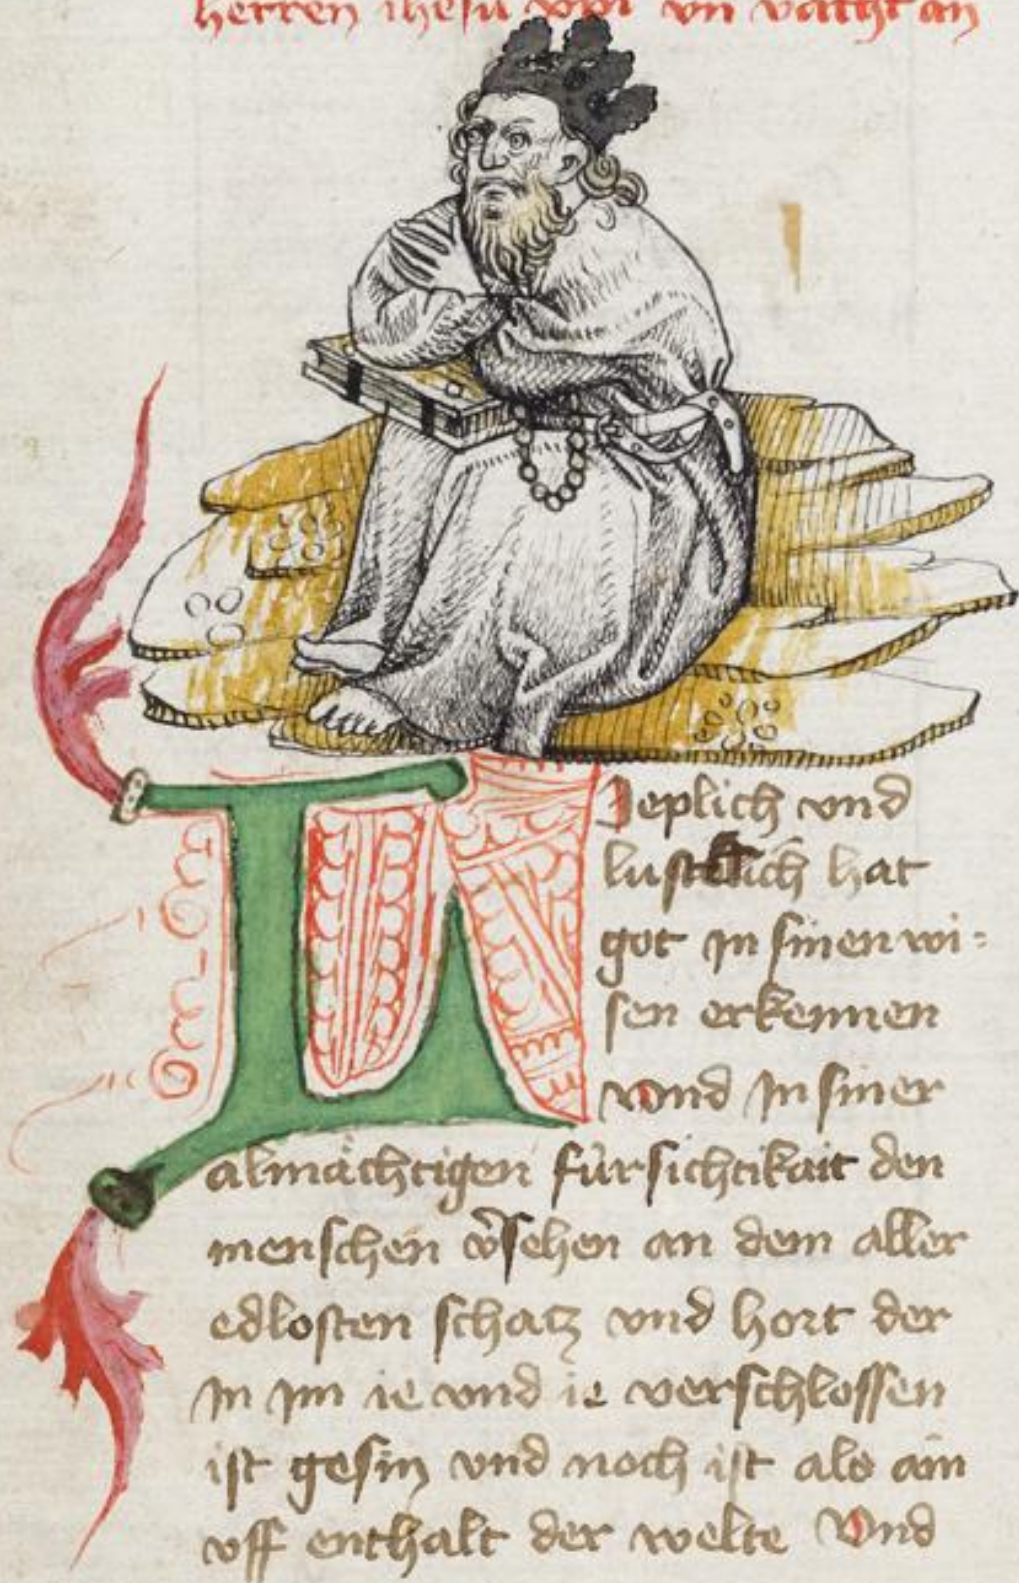 herren ihesu xpi vn vacht an
LJeplich vnd
lustlich hat
got jn sinen wi=
sen erkennen
vnd jn siner
almächtigen fürsichtikait den
menschen v̾sehen an dem aller
edlosten schatz vnd hort der
jn jm ie vnd ie verschlossen
ist gesin vnd noch ist als ain
vff enthalt der welte Vnd